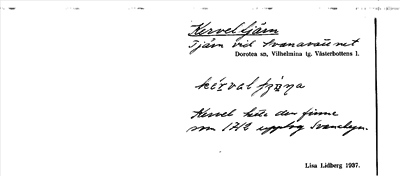 Kerveltjärn
Tjärn vid Svanavattnet
Dorotea sn, Vilhelmina tg. Västerbottens l.
Kervel hette den finne
som 1712 upptog Svanabyn.
Lisa Lidberg 1937.